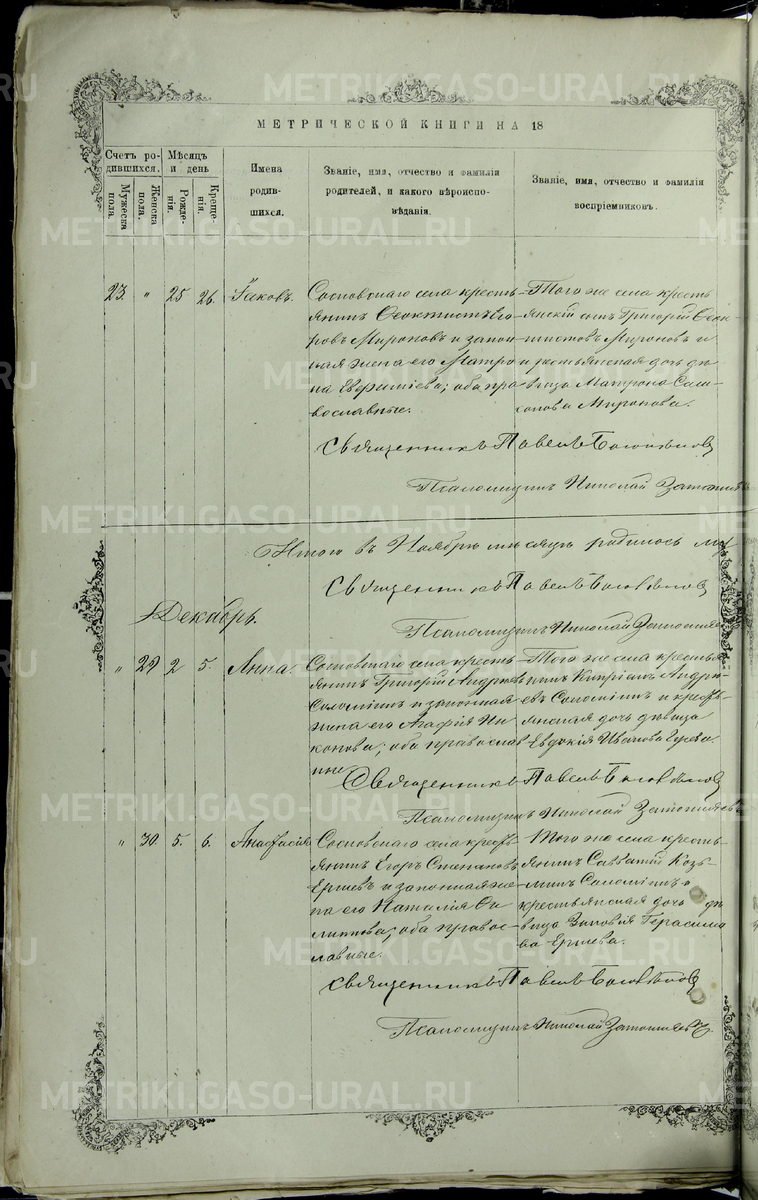 METRIKI.GASO-URAL.RU
МЕТРИЧЕСКОЙ КНИГИ НА 18
Счетъ родившихся.
Мужеска пола.
Женска пола.
Мѣсяцъ и день
Рожденія.
Крещенія.
Имена родившихся.
Званіе, имя, отчество и фамилія родителей, и какого вѣроисповѣданія.
Званіе, имя, отчество и фамилія воспріемниковъ.
23. " 25 26. Іаковъ.
Сосновскаго села кресть-
янинъ Ѳеоктистъ Его-
ровъ Мироновъ и закон-
ная жена его Матро-
на Евѳиміева; оба пра-
вославные.
Того же села кресть
янскій сынъ Григорій Ѳеок-
тистовъ Мироновъ и
крестьянская дочь дѣ-
вица Матрона
Миронова.
Священникъ Павелъ
Псаломщикъ Николай
Итого въ Ноябрѣ мѣсяцѣ родилось
Священникъ Павелъ
Псаломщикъ Николай
Декабрь.
" 29 2 5. Анна.
Сосновскаго села кресть-
янинъ Григорій Андреевъ
Соломеинъ и законная
жена его Агафія Ни-
конова; оба православ
ные
Того же села крестья
нинъ Кипріанъ Андре-
евъ Соломеинъ и кресть-
янская дочь дѣвица
Евдокія Иванова
Священникъ Павелъ
Псаломщикъ Николай
" 30. 5. 6. Анастасія
Сосновскаго села кресть-
янинъ Егоръ Степановъ
Ершевъ и законная же-
на его Наталія Фи
липпова; оба правос-
лавные.
Того же села кресть-
янинъ Савватій Козь-
минъ Соломеинъ и
крестьянская дочь дѣ
вица Зиновія Герасимо
ва Ершева.
Священникъ Павелъ
Псаломщикъ Николай